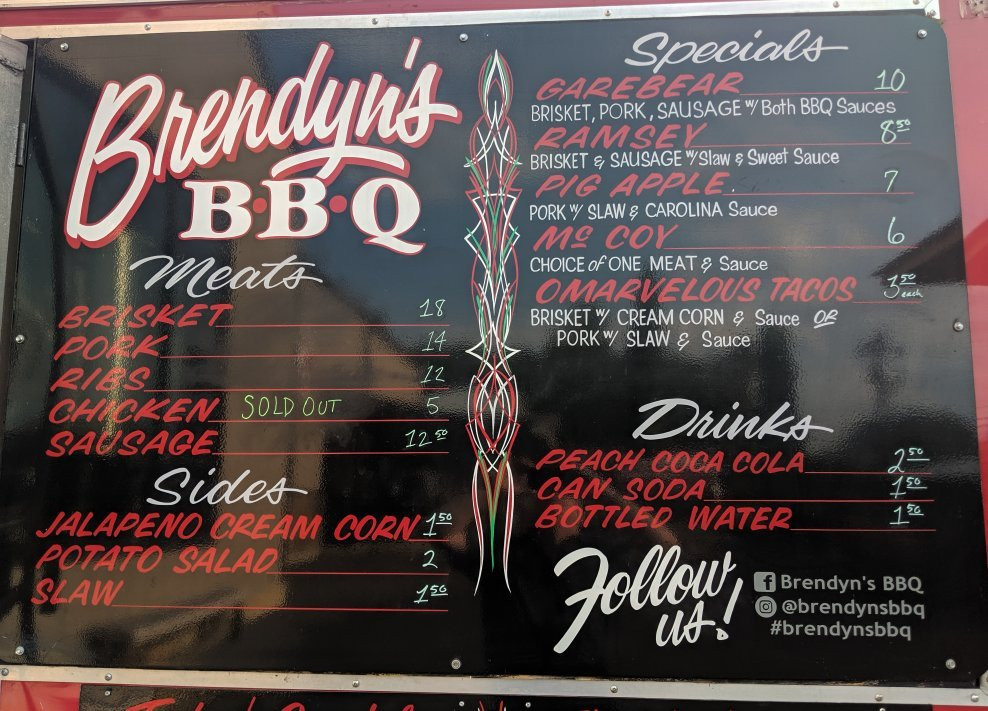 Brendyn's
B·B·Q
Meats
BRISKET 18
PORK 14
RIBS 12
CHICKEN SOLD OUT 5
SAUSAGE 12 50
Sides
JALAPENO CREAM CORN 1 50
POTATO SALAD 2
SLAW 1 50
Specials
GAREBEAR 10
BRISKET, PORK, SAUSAGE w/ Both BBQ Sauces
RAMSEY 8 50
BRISKET & SAUSAGE w/ Slaw & Sweet Sauce
PIG APPLE 7
PORK w/ SLAW & CAROLINA Sauce
Mc COY 6
CHOICE of ONE MEAT & Sauce
OMARVELOUS TACOS 3 50 each
BRISKET w/ CREAM CORN & Sauce OR
PORK w/ SLAW & Sauce
Drinks
PEACH COCA COLA 2 50
CAN SODA 1 50
BOTTLED WATER 1 50
Follow
us!
Brendyn's BBQ
@brendynsbbq
#brendynsbbq